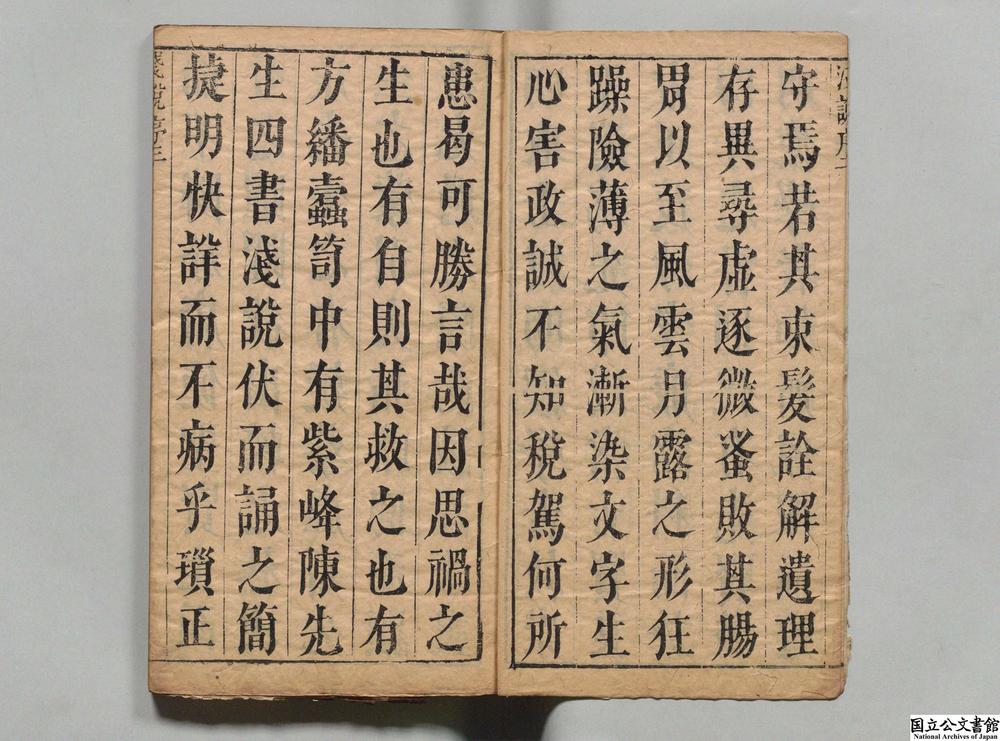 守焉若其束髮詮解遺理
存異尋虛逐微蚤敗其腸
胃以至風雲月露之形狂
躁險薄之氣漸染文字生
心害政誠不知稅駕何所
患曷可勝言哉因思禍之
生也有自則其救之也有
方繙蠹笥中有紫峰陳先
生四書淺說伏而誦之簡
㨗明快詳而不病乎瑣正
淺說序三
国立公文書館
National Archives of Japan